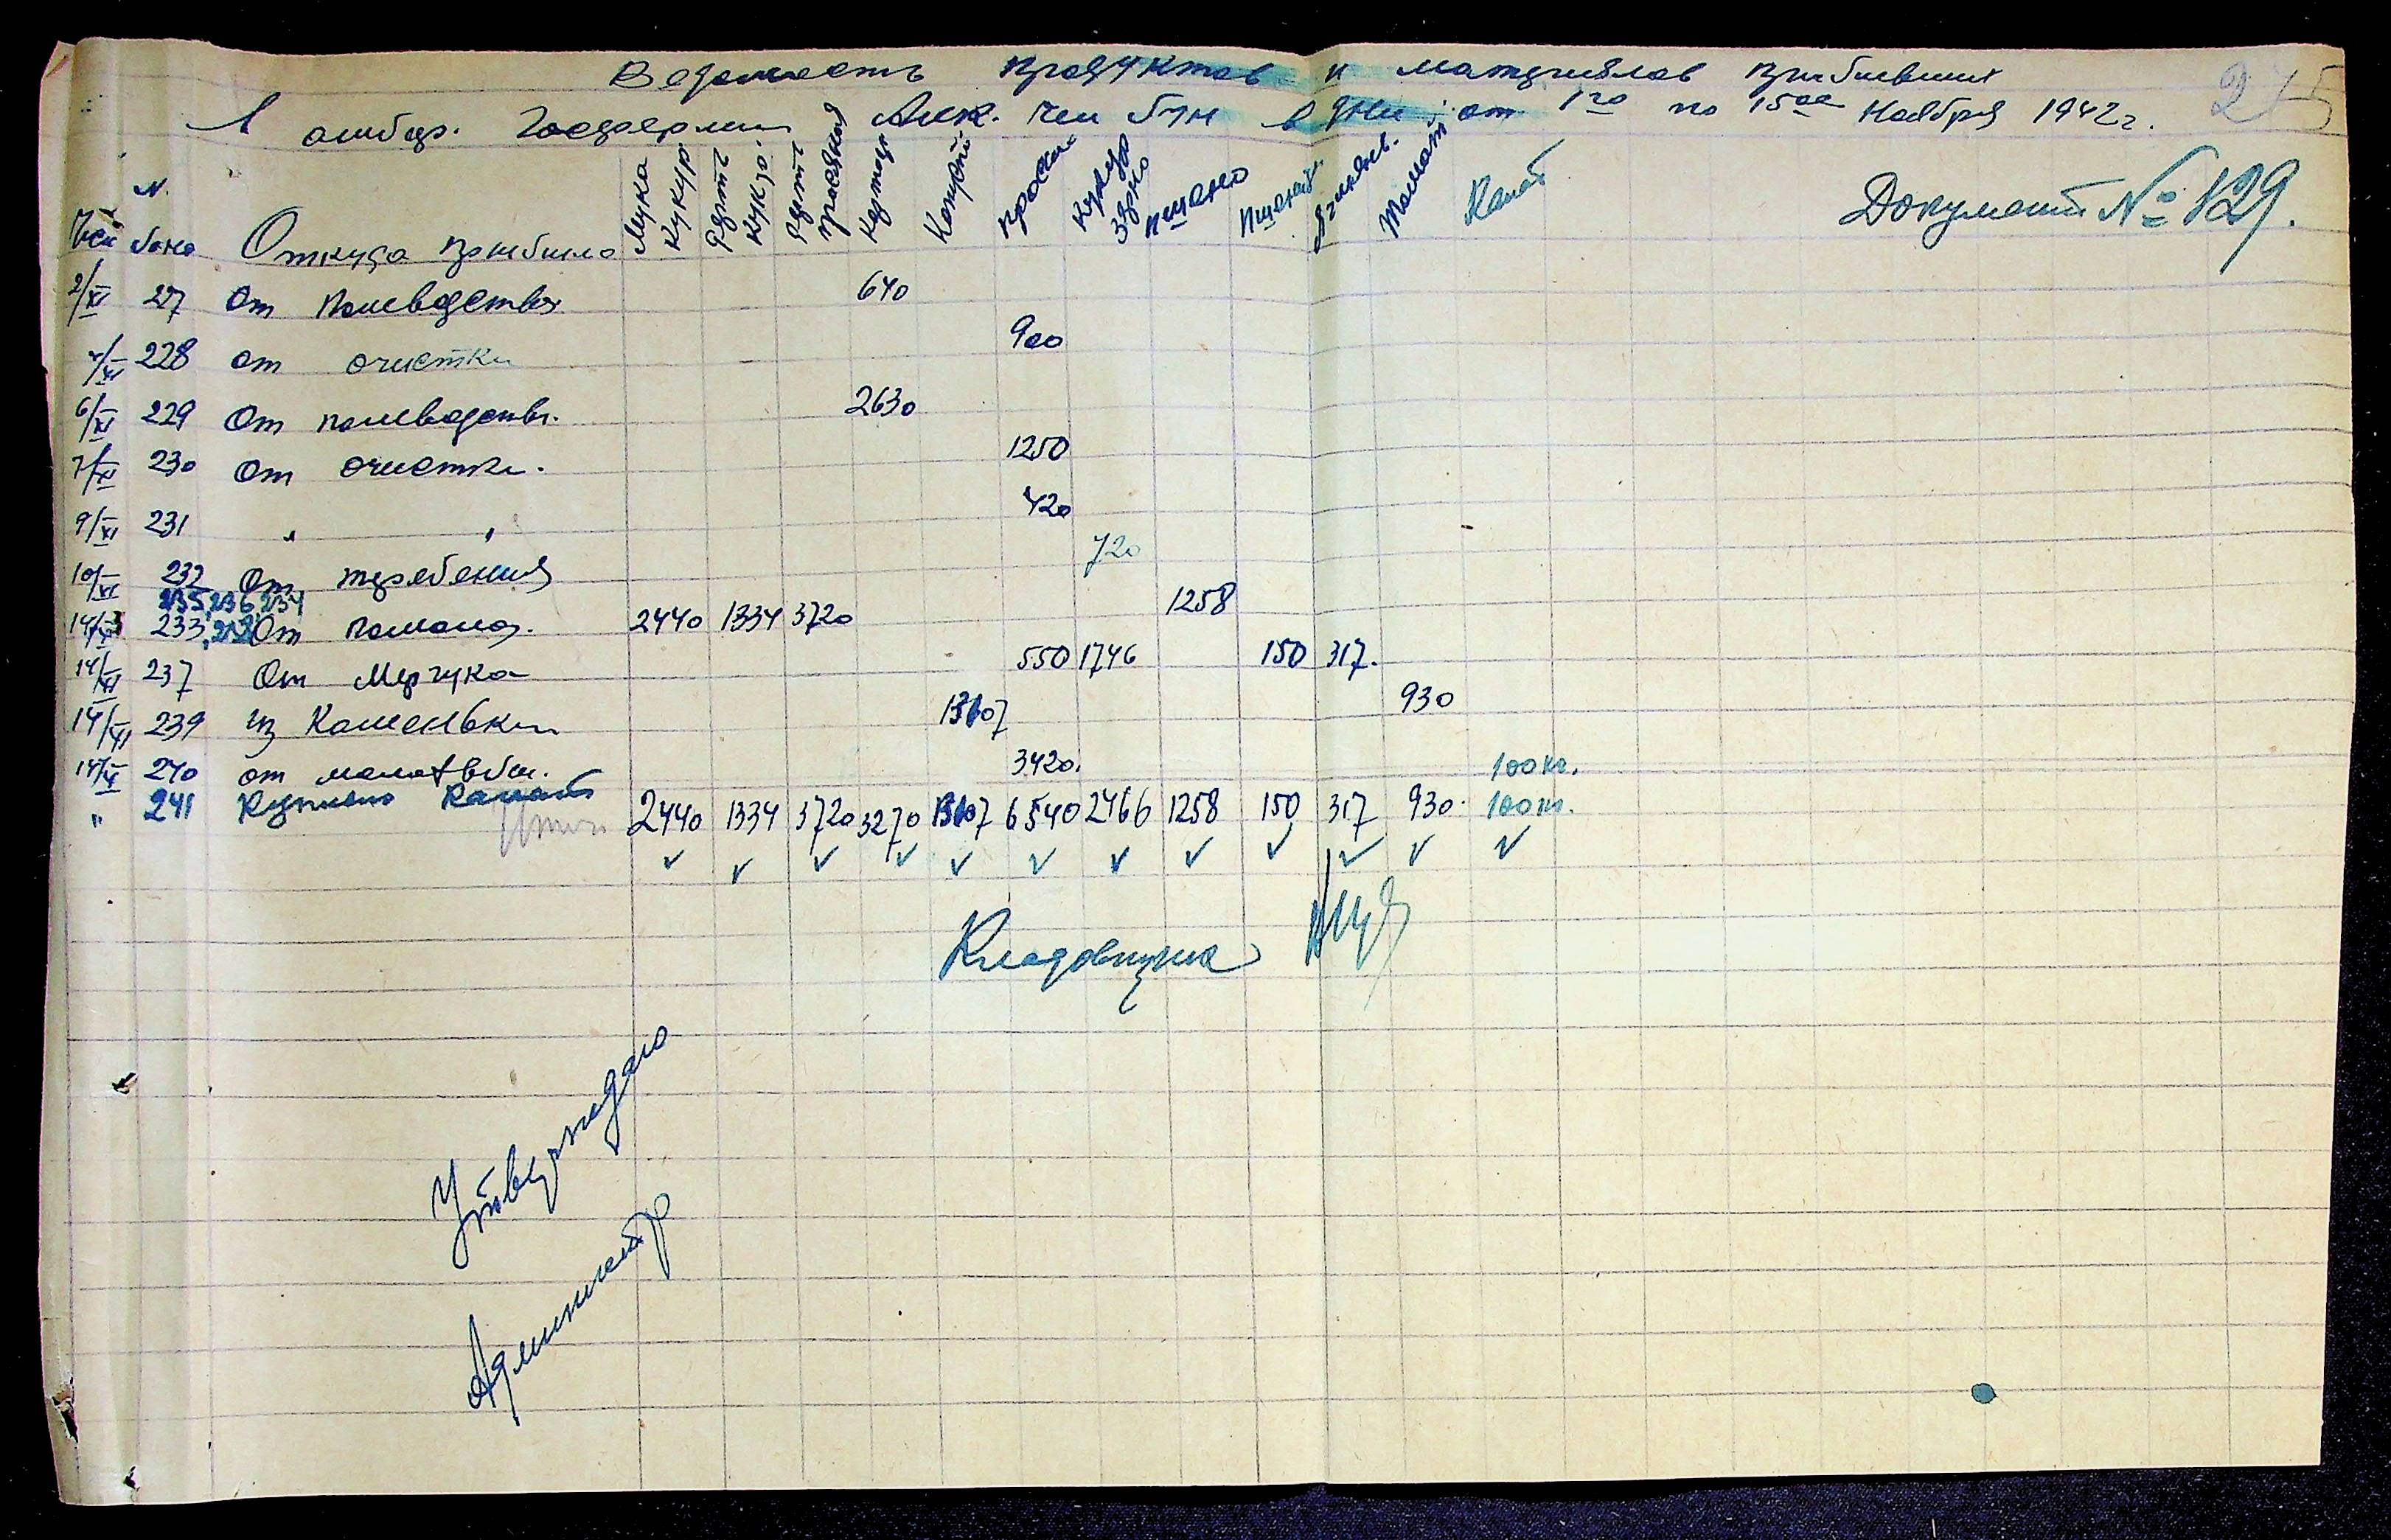 Ведомость продуктов и материялов прибывших
275
в амбар. Госдзержин Алек. Чей бун в дни от 1го по 15ое Ноября 1942 г.
Документ № 129.
N.
Чис бона Откуда прибыло Мука Кукур. Дерть Кукур. Дерть просяная Картош Капуста просо Кукур зерно пшено Пшениц Ячмень. Томат Канат
2/XI 27 От Полеводства 640
4/XI 228 от очистки 900
6/XI 229 От полеводств. 2630
7/XI 230 От очистки. 1250
9/XI 231 " " 420
10/XI 232 От теребения 720
235, 236, 234
14/XI 233, От помола. 2440 1334 3720 1258
14/XI 237 От Мерчука 550 1746 150 317.
14/XI 239 из Каменьки 1307 930
14/XI 240 от молотьбы. 3420.
" 241 Куплено Канат 100 кг.
Итого 2440 1334 3720 3270 1307 6540 2466 1258 150 317 930. 100 кг.
Кладовщик
Утверждаю
Администр